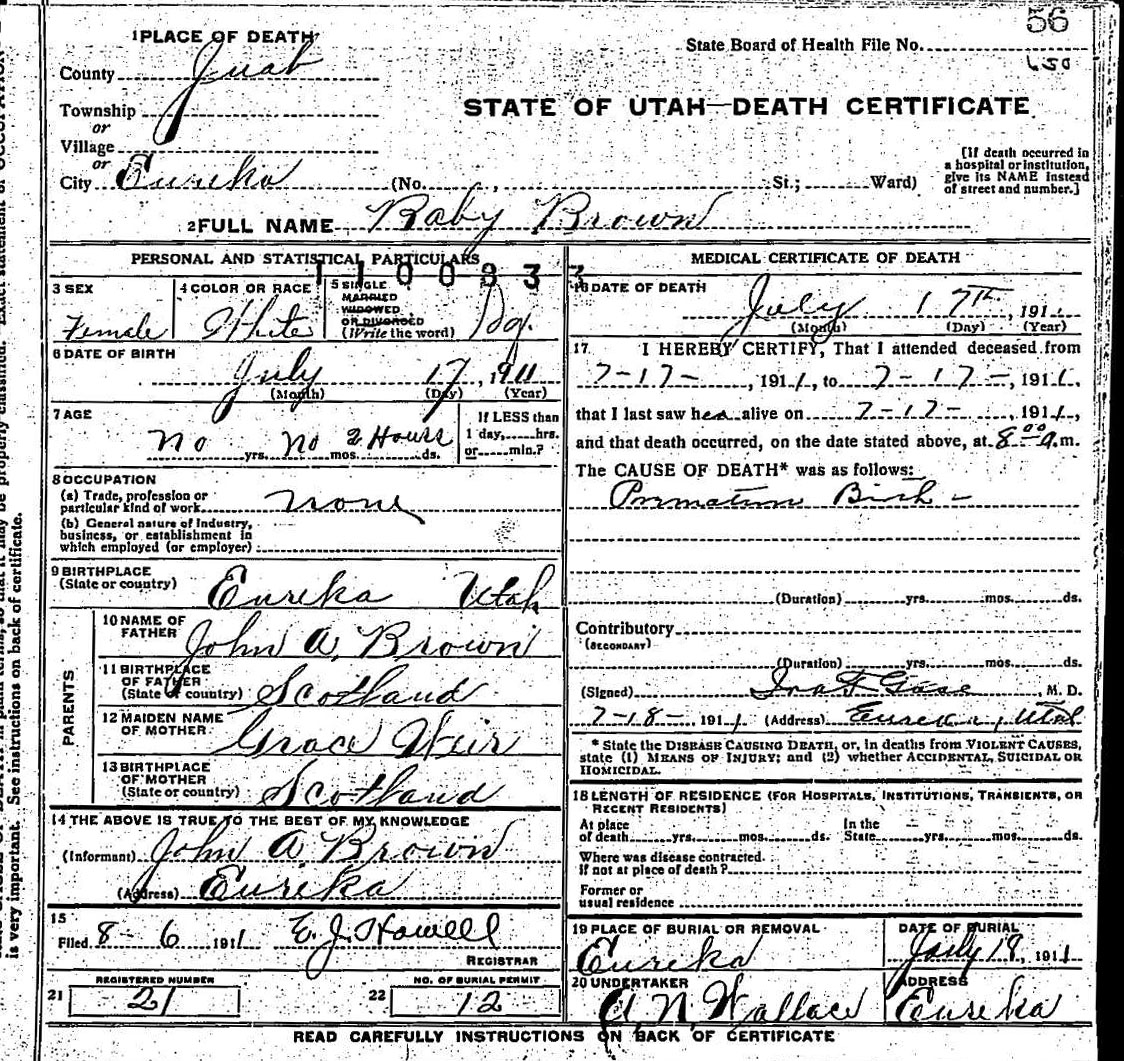 56
1 PLACE OF DEATH
State Board of Health File No.
650
County Juab
STATE OF UTAH—DEATH CERTIFICATE
Township
or
Village
or
City Eureka (No. , St.; Ward)
[If death occurred in
a hospital or institution,
give its NAME instead
of street and number.]
2 FULL NAME Baby Brown
PERSONAL AND STATISTICAL PARTICULARS
1100933
3 SEX
Female
4 COLOR OR RACE
White
5 SINGLE
MARRIED
WIDOWED
OR DIVORCED
(Write the word)
6 DATE OF BIRTH
July 17, 1911
(Month) (Day) (Year)
7 AGE
No yrs. No mos. 2 Hours ds.
If LESS than
1 day, hrs.
or min.?
8 OCCUPATION
(a) Trade, profession or
particular kind of work none
(b) General nature of Industry,
business, or establishment in
which employed (or employer)
9 BIRTHPLACE
(State or country) Eureka Utah
PARENTS
10 NAME OF
FATHER John A. Brown
11 BIRTHPLACE
OF FATHER
(State or country) Scotland
12 MAIDEN NAME
OF MOTHER Grace Weir
13 BIRTHPLACE
OF MOTHER
(State or country) Scotland
14 THE ABOVE IS TRUE TO THE BEST OF MY KNOWLEDGE
(Informant) John A. Brown
(Address) Eureka
15
Filed 8-6 1911 E. J. Howell
REGISTRAR
REGISTERED NUMBER
21 21
NO. OF BURIAL PERMIT
22 12
MEDICAL CERTIFICATE OF DEATH
16 DATE OF DEATH
July 17th, 1911
(Month) (Day) (Year)
17 I HEREBY CERTIFY, That I attended deceased from
7-17-, 1911, to 7-17-, 1911,
that I last saw her alive on 7-17-, 1911,
and that death occurred, on the date stated above, at 8 00 a.m.
The CAUSE OF DEATH* was as follows:
Premature Birth -
(Duration) yrs. mos. ds.
Contributory
(SECONDARY)
(Duration) yrs. mos. ds.
(Signed) Ira F, M. D.
7-18-, 1911, (Address) Eureka, Utah
* State the DISEASE CAUSING DEATH, or, in deaths from VIOLENT CAUSES,
state (1) MEANS OF INJURY; and (2) whether ACCIDENTAL, SUICIDAL OR
HOMICIDAL.
18 LENGTH OF RESIDENCE (FOR HOSPITALS, INSTITUTIONS, TRANSIENTS, OR
RECENT RESIDENTS)
At place
of death yrs. mos. ds.
In the
State yrs. mos. ds.
Where was disease contracted
If not at place of death?
Former or
usual residence
19 PLACE OF BURIAL OR REMOVAL
Eureka
DATE OF BURIAL
July 19, 1911
20 UNDERTAKER
A. N. Wallace
ADDRESS
Eureka
READ CAREFULLY INSTRUCTIONS ON BACK OF CERTIFICATE
is very important. See instructions on back of certificate.